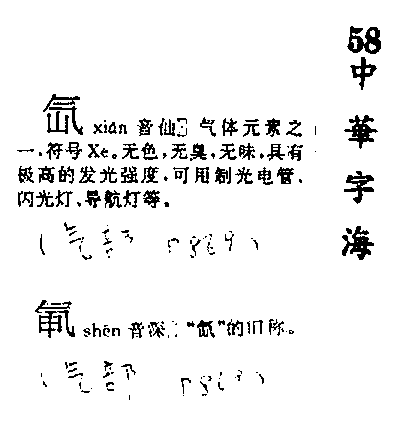 58
中華字海
氙 xiān 音仙 气体元素之
一,符号 Xe。无色,无臭,无味,具有
极高的发光强度,可用制光电管、
闪光灯、导航灯等。
(气部 P869)
氠 shēn 音深 “氙”的旧称。
(气部 P869)